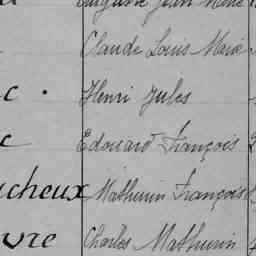 Auguste Jean Marie
Claude Louis Marie
c. Henri Jules
c Edouard François
cheux Mathurin François
vre Charles Mathurin